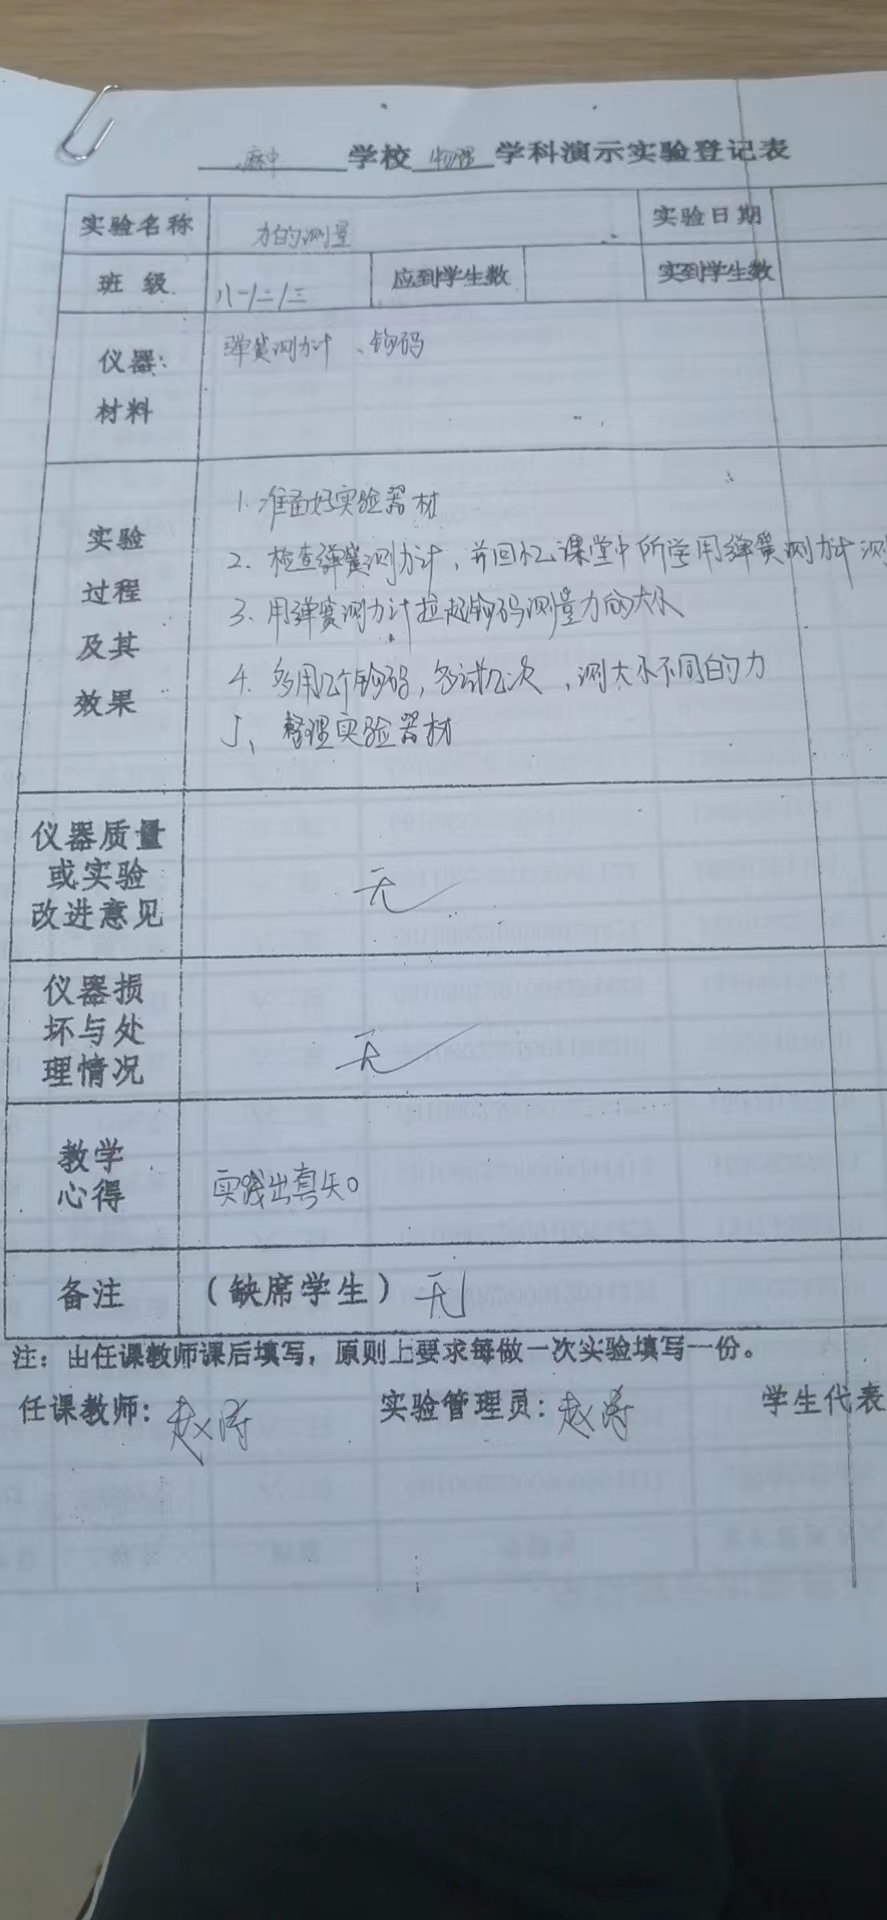 麻中 学校 物理 学科演示实验登记表
实验名称 力的测量 实验日期
班 级 八一/二/三 应到学生数 实到学生数
仪器: 弹簧测力计、钩码
材料
实验
过程
及其
效果
1. 准备好实验器材
2. 检查弹簧测力计，并回忆课堂中所学用弹簧测力计测
3. 用弹簧测力计拉起钩码测量力的大小
4. 多用几个钩码，多试几次，测大小不同的力
5、整理实验器材
仪器质量
或实验
改进意见
无
仪器损
坏与处
理情况
无
教学
心得
实践出真知。
备注 (缺席学生) 无
注: 由任课教师课后填写，原则上要求每做一次实验填写一份。
任课教师: 赵涛 实验管理员: 赵涛 学生代表